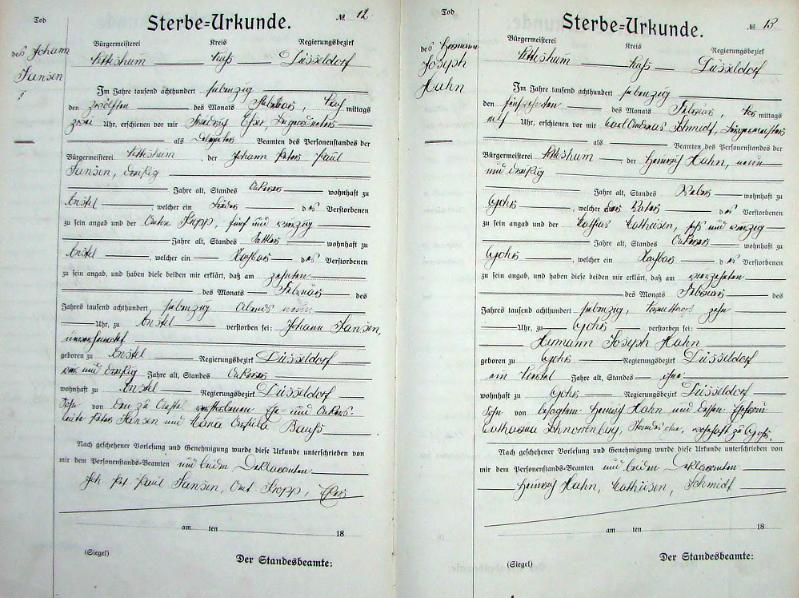 Tod
Sterbe-Urkunde.
№ 12
des Johann
Jansen
Bürgermeisterei Kreis Regierungsbezirk
Nettesheim Neuß Düsseldorf
Im Jahre tausend achthundert siebenzig
den zwölften des Monats Februar, Nachmittags
zwei Uhr, erschienen vor mir
als Beamten des Personenstandes der
Bürgermeisterei Nettesheim der Johann Peter Paul
Jansen, dreißig
Jahre alt, Standes Ackerer wohnhaft zu
Anstel, welcher ein Bruder des Verstorbenen
zu sein angab und der Kropp, fünf und zwanzig
Jahre alt, Standes wohnhaft zu
Anstel, welcher ein Nachbar des Verstorbenen
zu sein angab, und haben diese beiden mir erklärt, daß am zehnten
des Monats Februar des
Jahres tausend achthundert siebenzig Abends neun
Uhr, zu Anstel verstorben sei: Johann Jansen,
unverheirathet
geboren zu Anstel Regierungsbezirk Düsseldorf
und dreißig Jahre alt, Standes Ackerer
wohnhaft zu Anstel Regierungsbezirk Düsseldorf
Sohn von den zu Anstel verstorbenen Ehe- und Ackers-
leute Peter Jansen und Maria
Nach geschehener Vorlesung und Genehmigung wurde diese Urkunde unterschrieben von
mir dem Personenstands-Beamten und beiden Deklaranten
Joh Pet Paul Jansen, Kropp,
am ten 18
(Siegel) Der Standesbeamte:
Tod
Sterbe-Urkunde.
№ 13
des Hermann
Joseph
Hahn
Bürgermeisterei Kreis Regierungsbezirk
Nettesheim Neuß Düsseldorf
Im Jahre tausend achthundert siebenzig
den fünfzehnten des Monats Februar, Vormittags
elf Uhr, erschienen vor mir Carl Andreas Schmidt, Bürgermeister
als Beamten des Personenstandes der
Bürgermeisterei Nettesheim der Heinrich Hahn, neun
und dreißig
Jahre alt, Standes Weber wohnhaft zu
Gohr, welcher der Vater des Verstorbenen
zu sein angab und der sechs und zwanzig
Jahre alt, Standes Ackerer wohnhaft zu
Gohr, welcher ein Nachbar des Verstorbenen
zu sein angab, und haben diese beiden mir erklärt, daß am vierzehnten
des Monats Februar des
Jahres tausend achthundert siebenzig, Vormittags zehn
Uhr, zu Gohr verstorben sei:
Hermann Joseph Hahn
geboren zu Gohr Regierungsbezirk Düsseldorf
ein Viertel Jahre alt, Standes ohne
wohnhaft zu Gohr Regierungsbezirk Düsseldorf
Sohn von besagtem Heinrich Hahn und dessen Ehefrau
Catharina Standes ohne, wohnhaft zu Gohr.
Nach geschehener Vorlesung und Genehmigung wurde diese Urkunde unterschrieben von
mir dem Personenstands-Beamten und beiden Deklaranten
Heinrich Hahn, Schmidt
am ten 18
(Siegel) Der Standesbeamte: